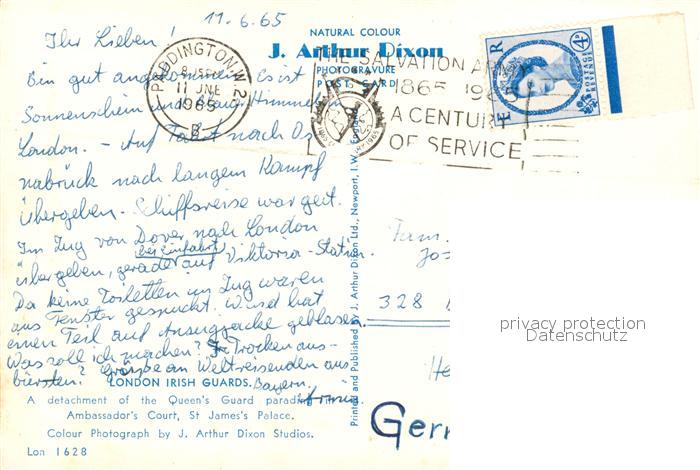 11.6.65
Ihr Lieben!
Bin gut angekommen. Es ist
Sonnenschein und blauer Himmel in
London. - Auf Fahrt nach Os-
nabrück nach langem Kampf
übergeben. Schiffsreise war gut.
Im Zug von Dover nach London
bei Einfahrt
übergeben, gerade auf Viktoria-Station.
Da keine Toiletten im Zug waren
aus Fenster gespuckt. Wind hat
einen Teil auf Anzugjacke geblasen.
Was soll ich machen? Trocken aus-
bürsten? Grüße an Weltreisenden aus
Bayern.
NATURAL COLOUR
J. Arthur Dixon
PHOTOGRAVURE
POST CARD
PADDINGTON W.2
11 JNE
1965
B
THE SALVATION ARMY
1865 1965
A CENTURY
OF SERVICE
E R
4D
POSTAGE REVENUE
Printed and Published by J. Arthur Dixon Ltd., Newport, I.W., England
Fam.
328
Gerr
privacy protection
Datenschutz
LONDON IRISH GUARDS.
A detachment of the Queen's Guard parading in
Ambassador's Court, St James's Palace.
Colour Photograph by J. Arthur Dixon Studios.
Lon 1628